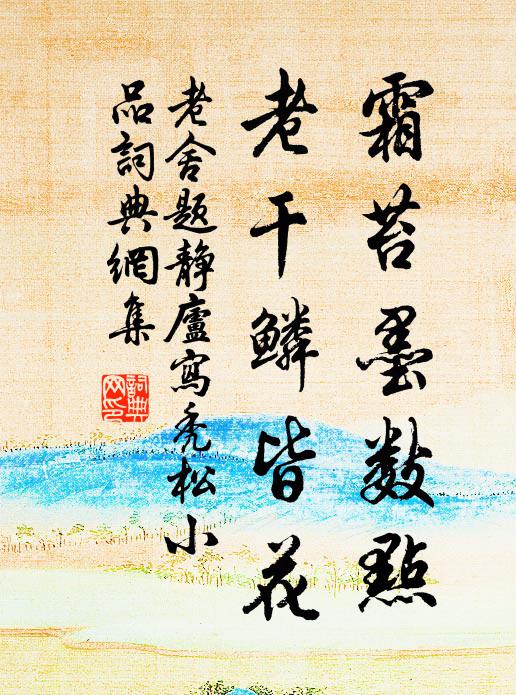 霜苔墨數點
老干鱗皆花
老舍題靜廬寫禿松小
品詞典網集
詞典
网印